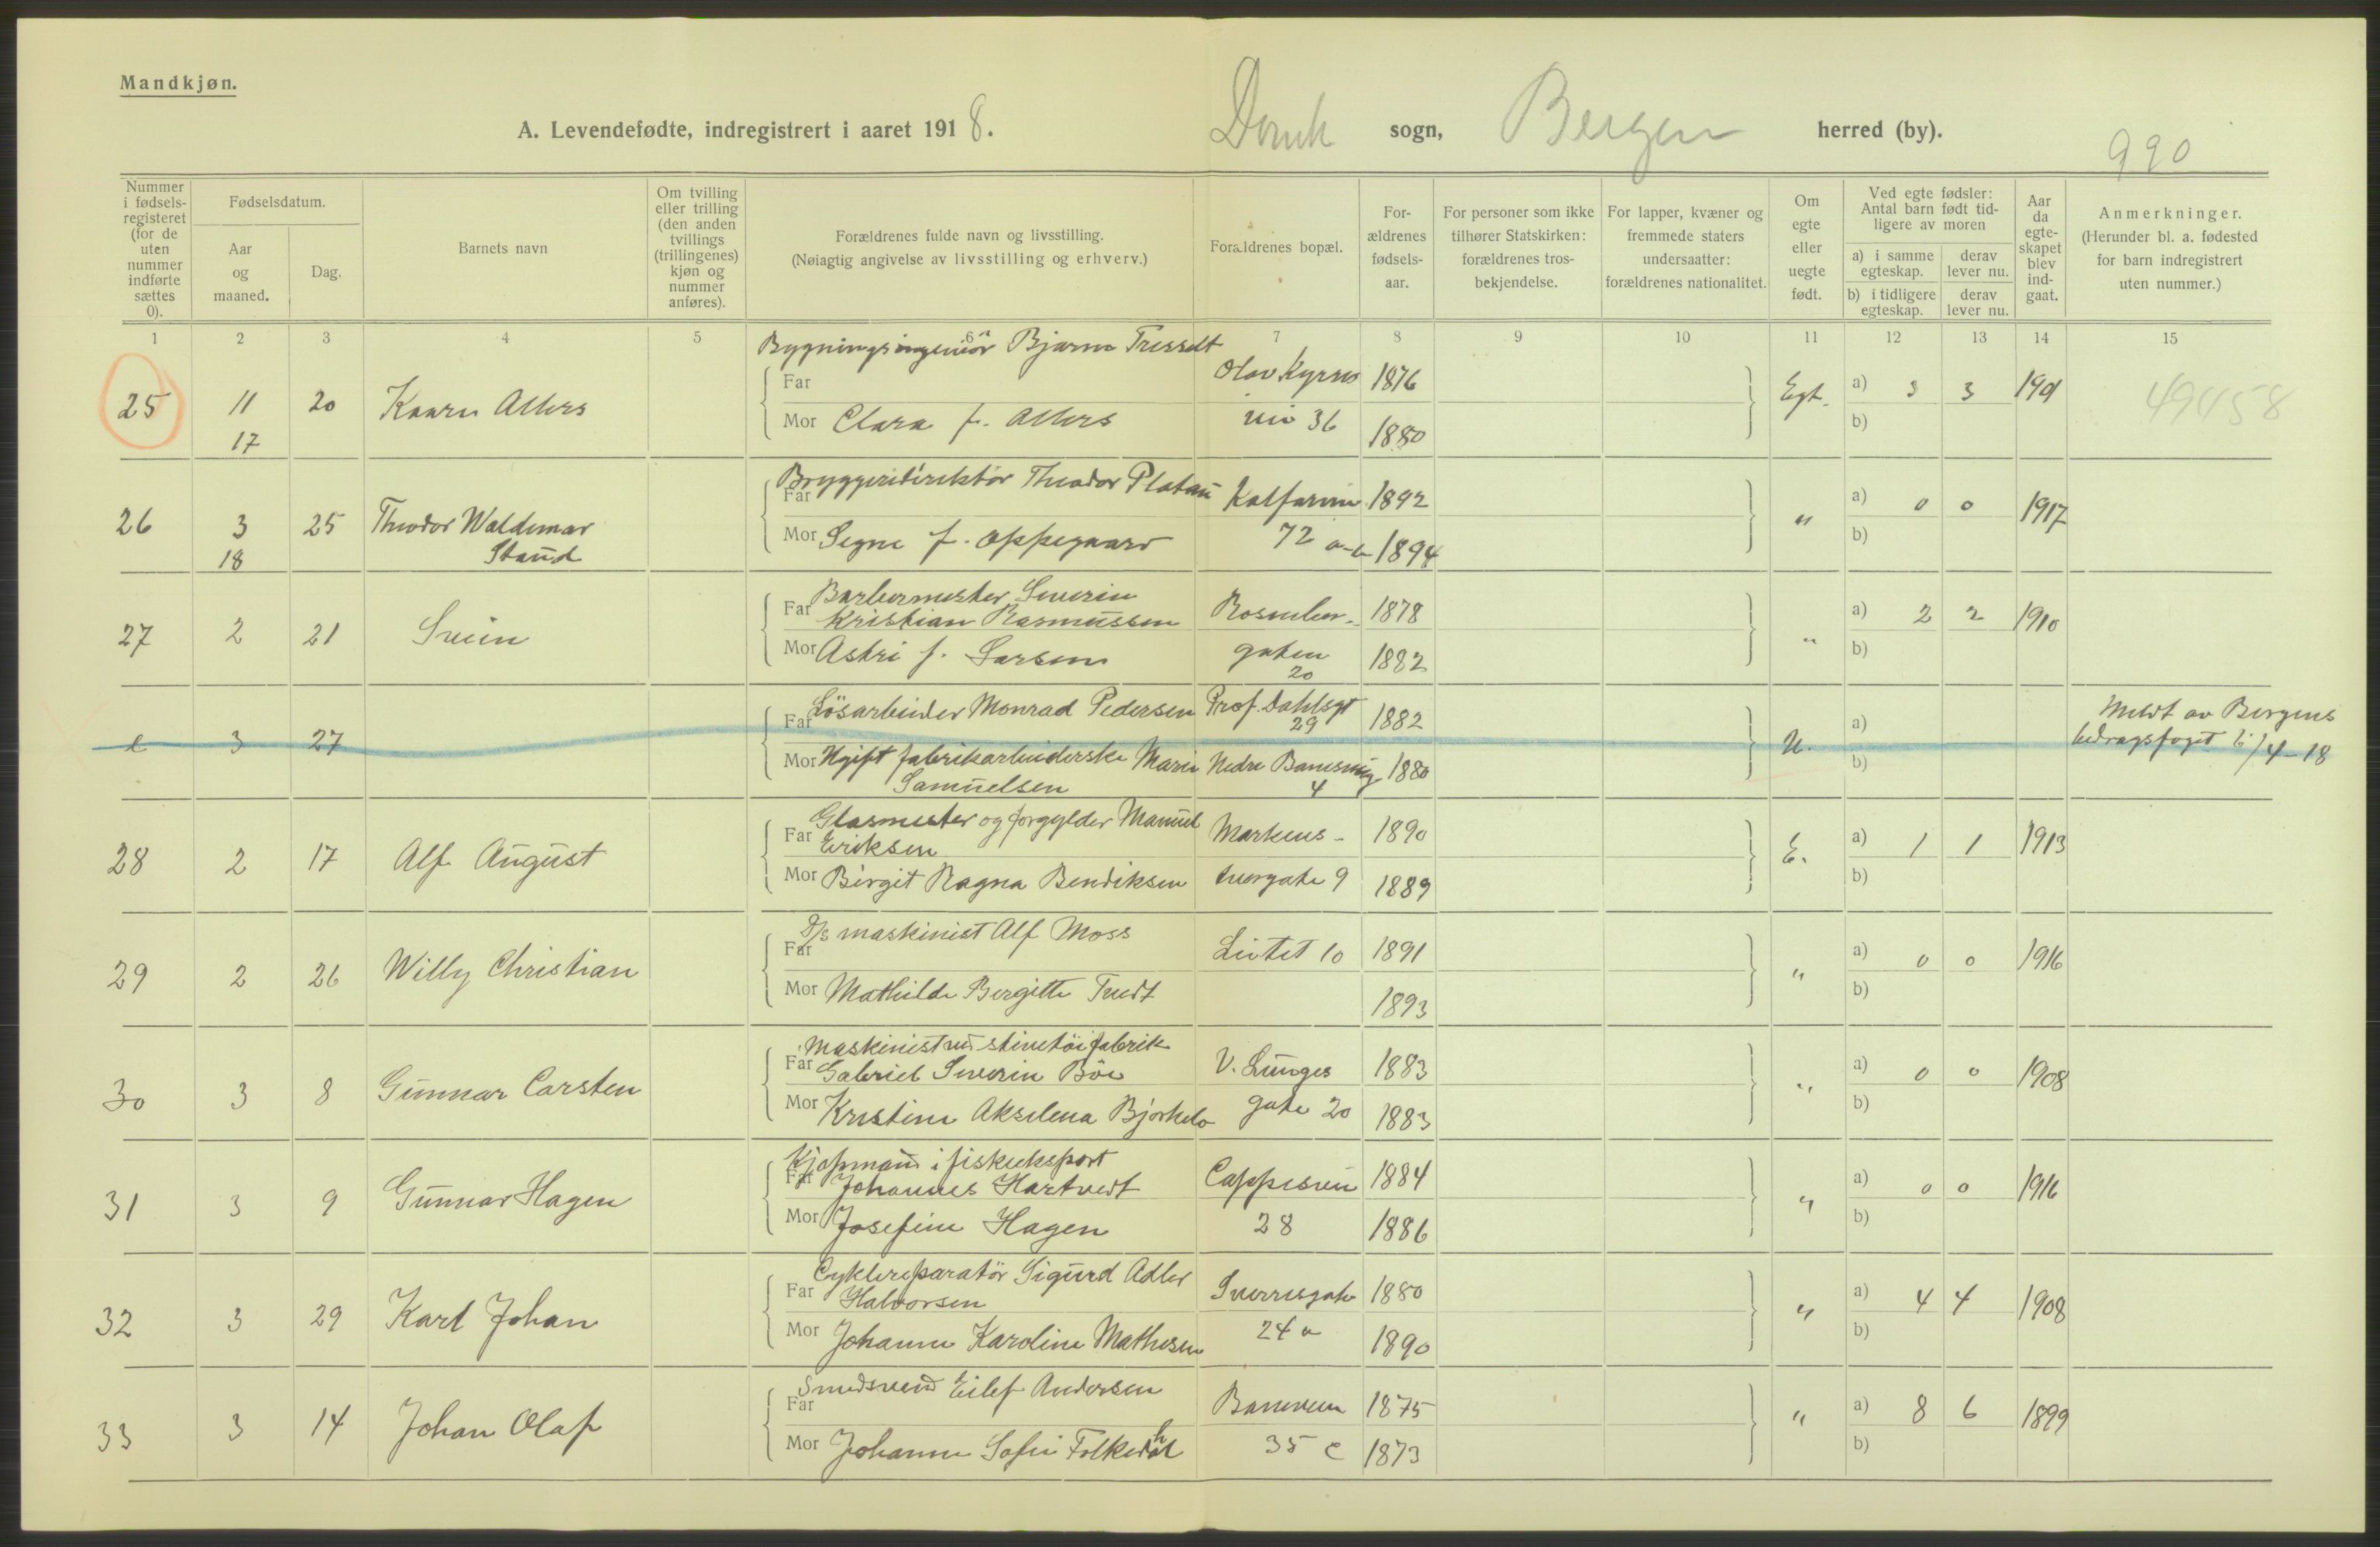 Mandkjøn.
A. Levendefødte, indregistrert i aaret 1918. Domk sogn, Bergen herred (by).
990
Nummer i fødsels-registeret (for de uten nummer indførte sættes 0).
Fødselsdatum.
Aar og maaned.
Dag.
Barnets navn
Om tvilling eller trilling (den anden tvillings (trillingenes) kjøn og nummer anføres).
Forældrenes fulde navn og livsstilling.
(Nøiagtig angivelse av livsstilling og erhverv.)
Forældrenes bopæl.
For-ældrenes fødsels-aar.
For personer som ikke tilhører Statskirken: forældrenes tros-bekjendelse.
For lapper, kvæner og fremmede staters undersaatter: forældrenes nationalitet.
Om egte eller uegte født.
Ved egte fødsler: Antal barn født tid-ligere av moren
a) i samme egteskap.
derav lever nu.
b) i tidligere egteskap.
derav lever nu.
Aar da egte-skapet blev ind-gaat.
Anmerkninger.
(Herunder bl. a. fødested for barn indregistrert uten nummer.)
1 2 3 4 5 6 7 8 9 10 11 12 13 14 15
Bygningsingeniør Bjarne Tresselt
25 11 20 Kaare Allers Far Olav Kyrres 1876 Egt. a) 3 3 1901 49458
17 Mor Clara f. Allers vei 36 1880 b)
Bryggeridirektør Theodor Platou
26 3 25 Theodor Waldemar Far Kalfarvei 1892 " a) 0 0 1917
18 Staud Mor Segne f. Oppegaard 72 a-b 1894 b)
Barbermester Severin
27 2 21 Svein Far Kristian Rasmussen Rosenber- 1878 " a) 2 2 1910
Mor Astri f. Larsen gaten 20 1882 b)
Far Løsarbeider Monrad Pedersen Prof. Dahlsgt 29 1882 a) Meldt av Bergens
3 27 U. bidragsfoget 6/4-18
Mor Ugift fabrikarbeiderske Marie Samuelsen Nedre Banesmug 4 1880 b)
Glasmester og forgylder Manuel
28 2 17 Alf August Far Eriksen Markeus- 1890 E. a) 1 1 1913
Mor Birgit Ragna Bendiksen tvergate 9 1889 b)
D/s maskinist Alf Moss
29 2 26 Willy Christian Far Livtet 10 1891 " a) 0 0 1916
Mor Mathilde Bergitte Tvedt 1893 b)
Maskinist ved stentøifabrik
30 3 8 Gunnar Carsten Far Gabriel Severin Böe V. Lunges 1883 " a) 0 0 1908
Mor Kristine Akselena Bjorkelo gate 20 1883 b)
Kjøpmand i fiskeeksport
31 3 9 Gunnar Hagen Far Johannes Hartvedt Cappesvei 1884 " a) 0 0 1916
Mor Josefine Hagen 28 1886 b)
Cyklereparatör Sigurd Adler
32 3 29 Karl Johan Far Halvorsen Sverresgate 1880 " a) 4 4 1908
Mor Johanne Karoline Mathesen 24 a 1890 b)
Smedsvend Eilef Andersen
33 3 14 Johan Olaf Far Baneveien 1875 " a) 8 6 1899
Mor Johanne Sofie Folkedahl 35 c 1873 b)